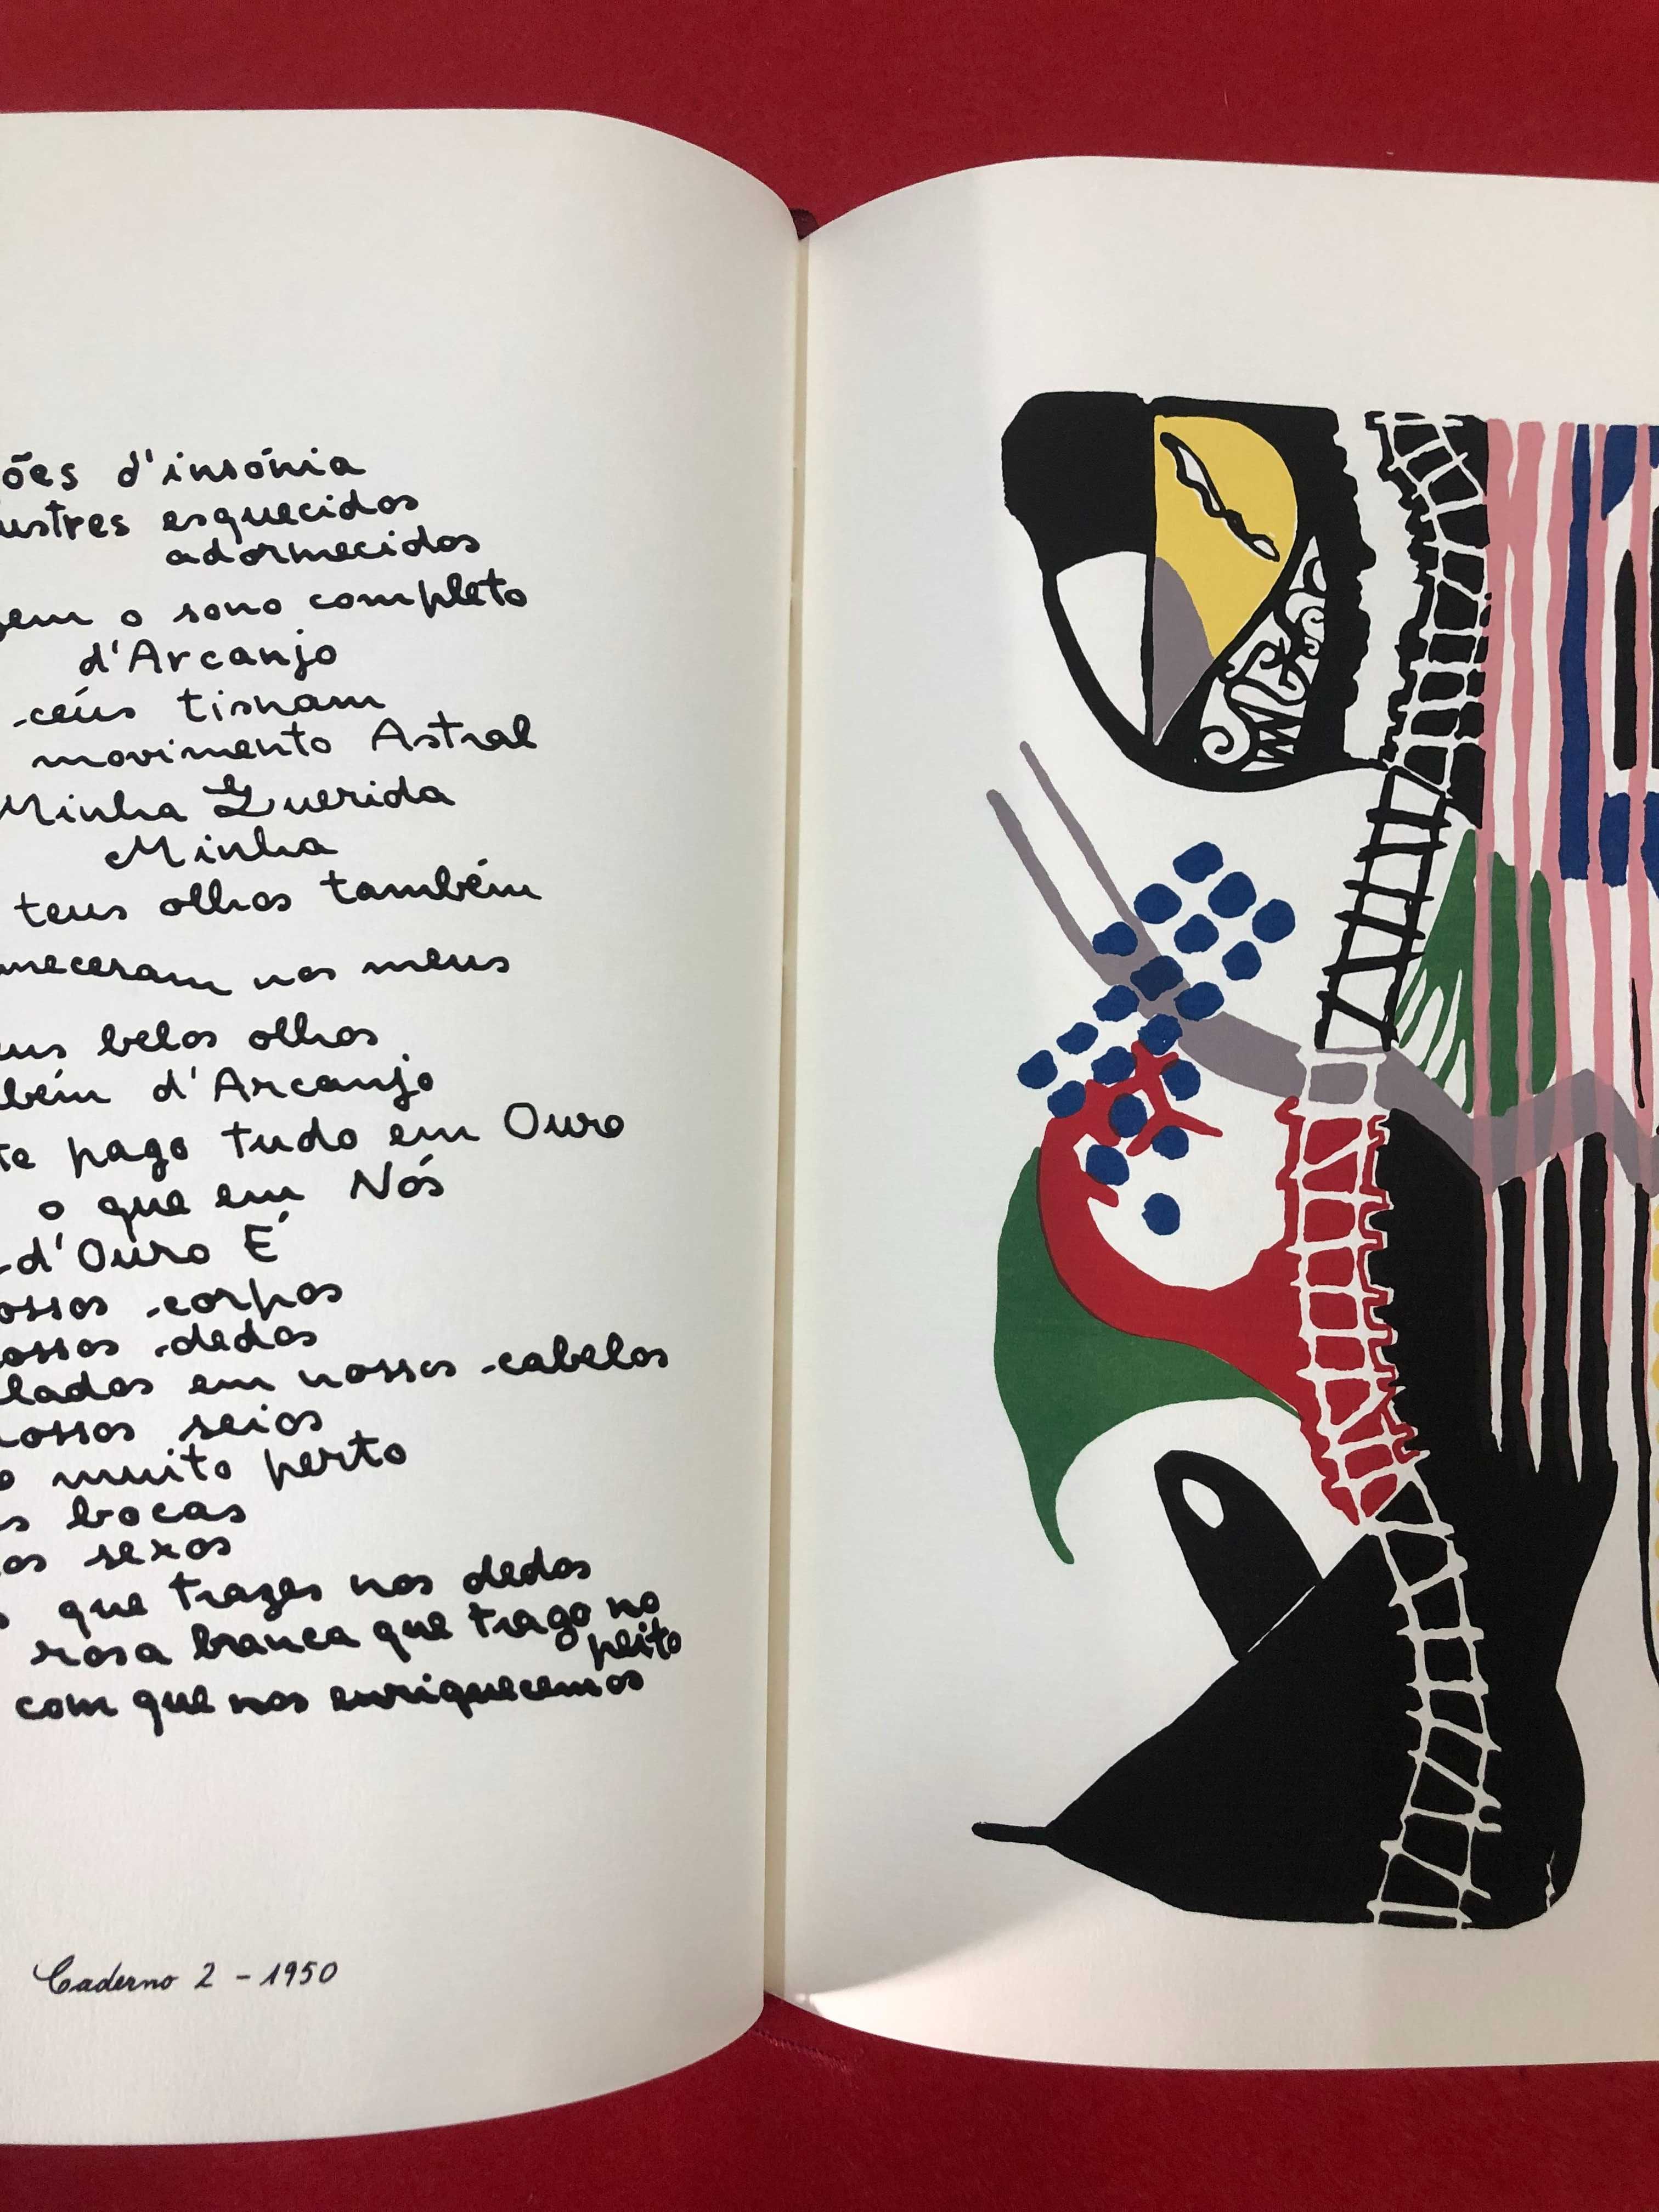 ões d'insónia
ustres esquecidos
adormecidos
gem o sono completo
d'Arcanjo
céus tisnam
movimento Astral
Minha Querida
Minha
teus olhos também
meceram nos meus
us belos olhos
bém d'Arcanjo
te pago tudo em Ouro
o que em Nós
d'Ouro É
ossos corpos
ossos dedos
lados em nossos cabelos
nossos seios
o muito perto
s bocas
os sexos
s que trazes nos dedos
rosa branca que trago no
peito
com que nos enriquecemos
Caderno 2 - 1950